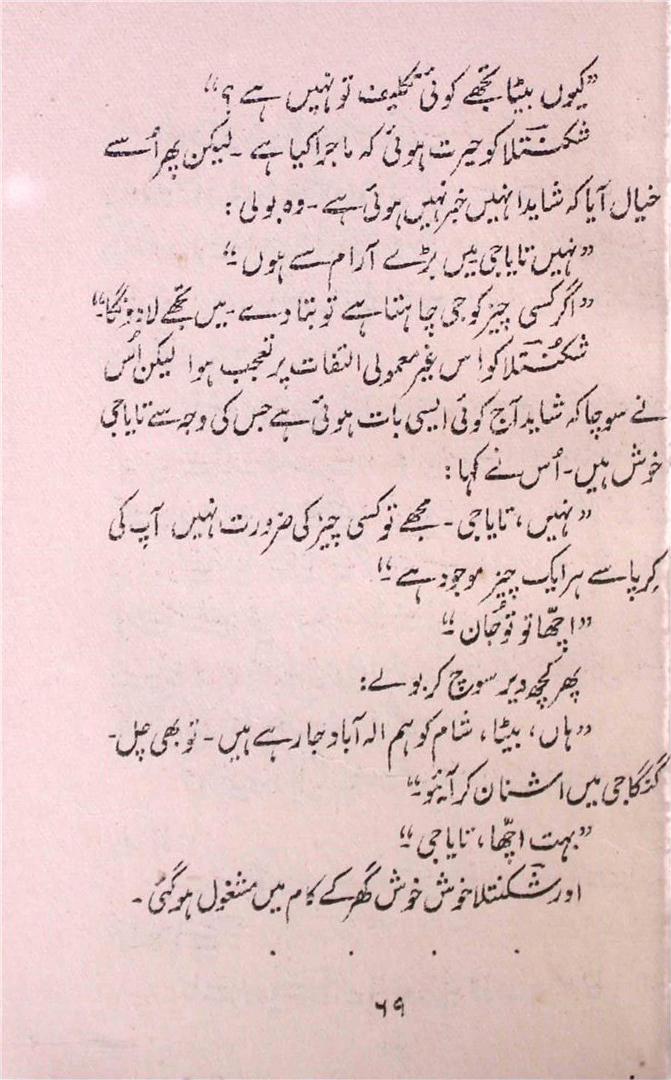 ”کیوں بیٹا تجھے کوئی تکلیف تو نہیں ہے؟“
شکنتلا کو حیرت ہوئی کہ ماجرا کیا ہے ۔ لیکن پھر اُسے
خیال آیا کہ شاید انہیں خبر نہیں ہوئی ہے ۔ وہ بولی :
”نہیں تایا جی میں بڑے آرام سے ہوں ۔“
”اگر کسی چیز کو جی چاہتا ہے تو بتا دے ۔ میں تجھے لا دونگا ۔“
شکنُتلا کو اس غیر معمولی التفات پر تعجب ہوا لیکن اُس
نے سوچا کہ شاید آج کوئی ایسی بات ہوئی ہے جس کی وجہ سے تایا جی
خوش ہیں ۔ اُس نے کہا :
”نہیں، تایا جی ۔ مجھے تو کسی چیز کی ضرورت نہیں، آپ کی
کِرپا سے ہر ایک چیز موجود ہے ۔“
”اچھّا تو تُو جان ۔“
پھر کچھ دیر سوچ کر بولے :
”ہاں، بیٹا، شام کو ہم الہ آباد جا رہے ہیں ۔ تو بھی چل ۔
گنگا جی میں اشنان کر آئیو ۔“
”بہت اچھّا، تایا جی ۔“
اور شکنتلا خوش خوش گھر کے کام میں مشغول ہو گئی ۔
. . . .
۶۹